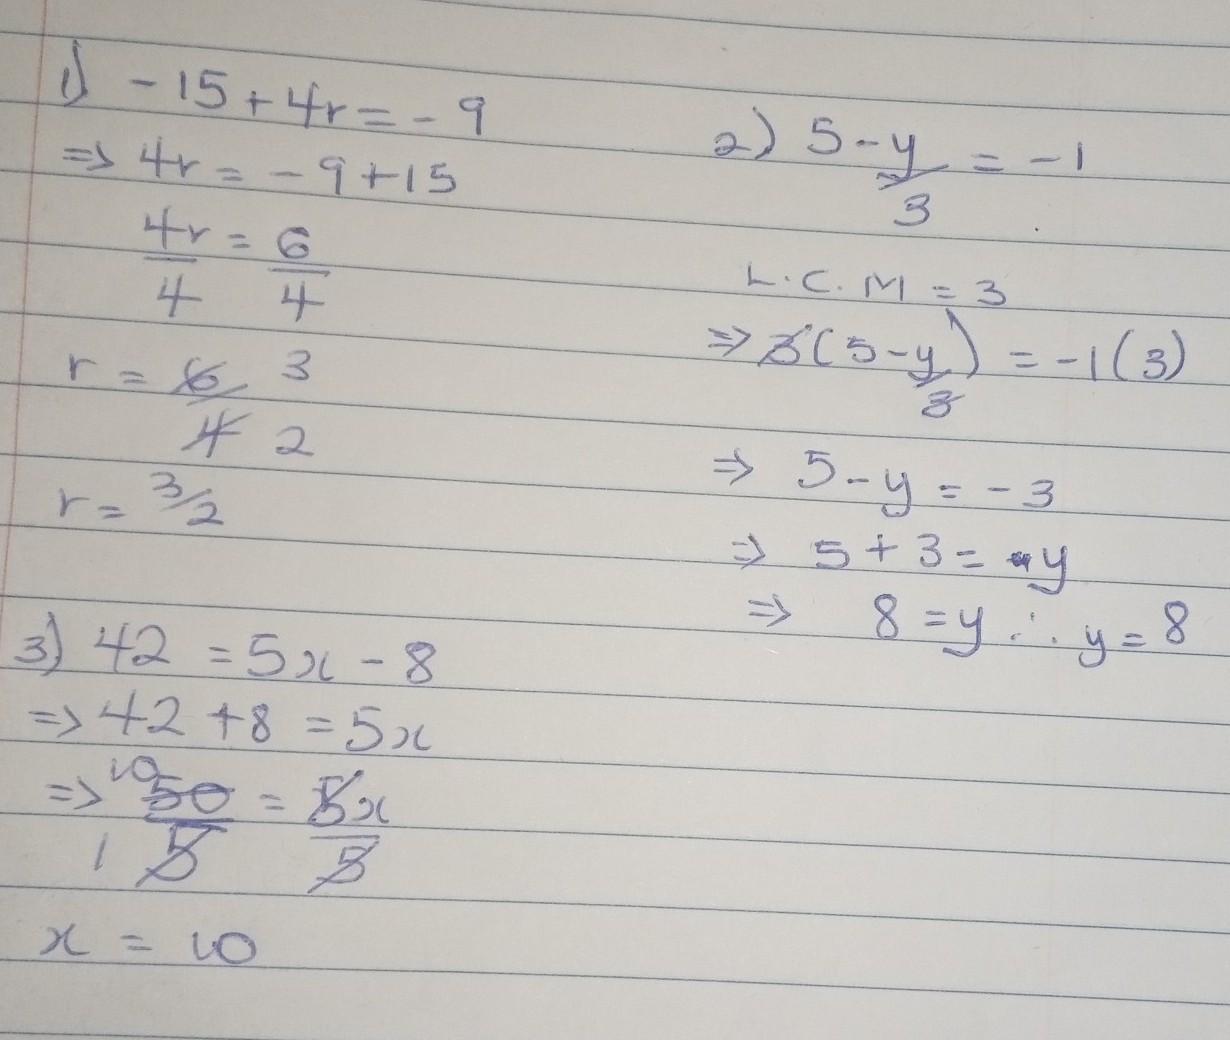 1) -15 + 4r = - 9
⇒ 4r = - 9 + 15
4r = 6
4 4
r = 6 3
4 2
r = 3/2
2) 5 - y/3 = -1
L.C.M = 3
⇒ 3(5 - y/3) = -1(3)
⇒ 5 - y = - 3
⇒ 5 + 3 = y
⇒ 8 = y ∴ y = 8
3) 42 = 5x - 8
⇒ 42 + 8 = 5x
⇒ 10 50 = 5x
1 5 5
x = 10